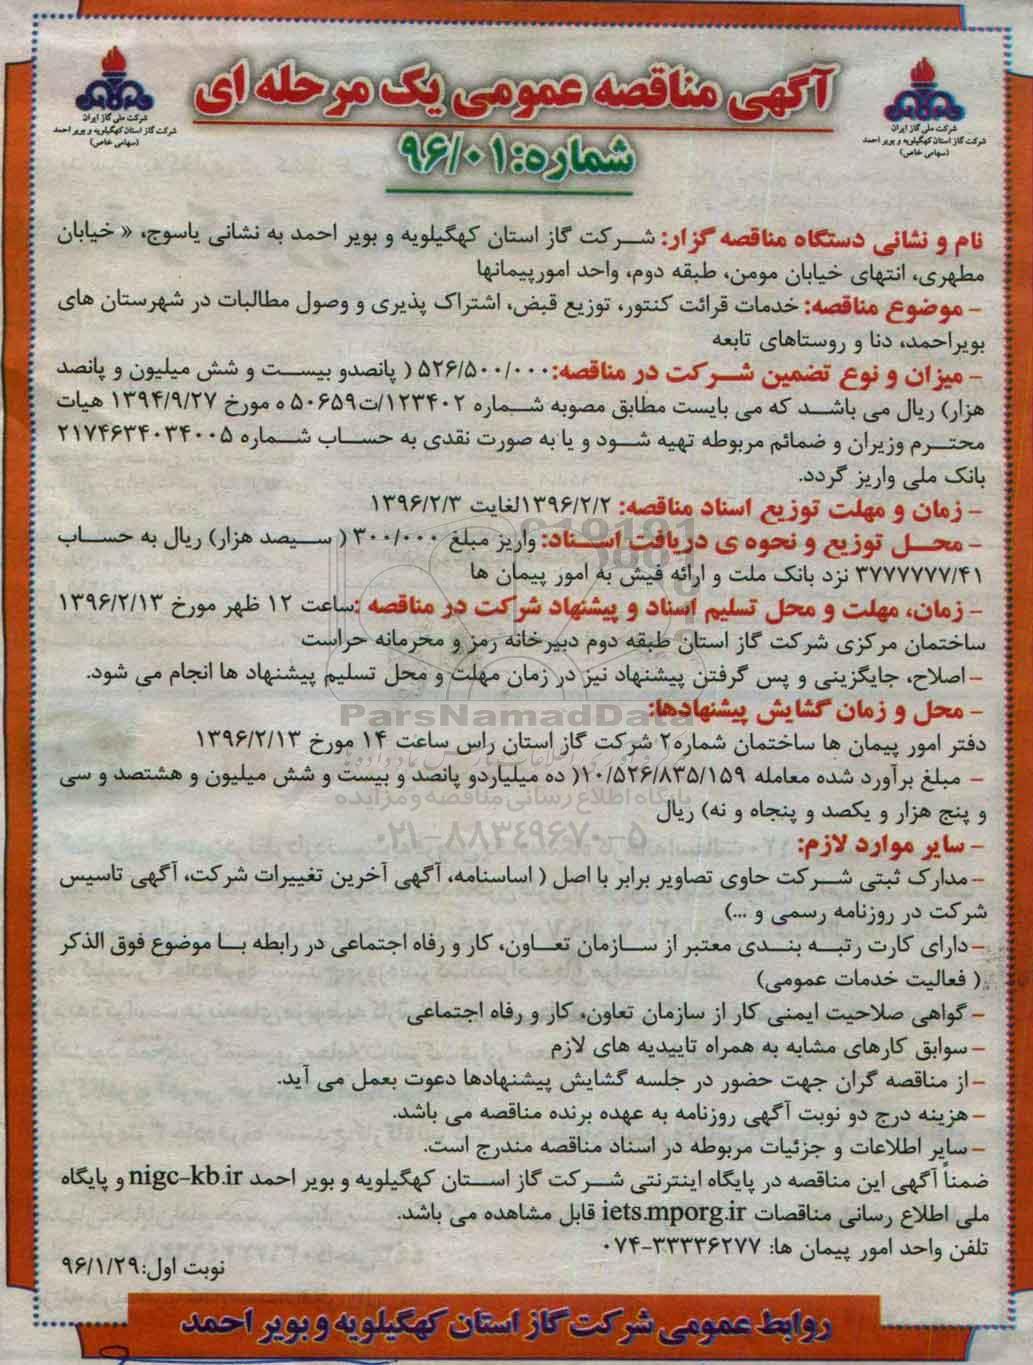 آگهی مناقصه عمومی یک مرحله ای
شماره: ۹۶/۰۱
شرکت ملی گاز ایران
شرکت گاز استان کهگیلویه و بویر احمد
(سهامی خاص)
شرکت ملی گاز ایران
شرکت گاز استان کهگیلویه و بویر احمد
(سهامی خاص)
نام و نشانی دستگاه مناقصه گزار: شرکت گاز استان کهگیلویه و بویر احمد به نشانی یاسوج، « خیابان
مطهری، انتهای خیابان مومن، طبقه دوم، واحد امورپیمانها
- موضوع مناقصه: خدمات قرائت کنتور، توزیع قبض، اشتراک پذیری و وصول مطالبات در شهرستان های
بویراحمد، دنا و روستاهای تابعه
- میزان و نوع تضمین شرکت در مناقصه: ۵۲۶/۵۰۰/۰۰۰ ( پانصدو بیست و شش میلیون و پانصد
هزار) ریال می باشد که می بایست مطابق مصوبه شماره ۱۲۳۴۰۲/ت۵۰۶۵۹ ه مورخ ۱۳۹۴/۹/۲۷ هیات
محترم وزیران و ضمائم مربوطه تهیه شود و یا به صورت نقدی به حساب شماره ۲۱۷۴۶۳۴۰۳۴۰۰۵
بانک ملی واریز گردد.
- زمان و مهلت توزیع اسناد مناقصه: ۱۳۹۶/۲/۲لغایت ۱۳۹۶/۲/۳
- محل توزیع و نحوه ی دریافت اسناد: واریز مبلغ ۳۰۰/۰۰۰ ( سیصد هزار) ریال به حساب
۳۷۷۷۷۷۷/۴۱ نزد بانک ملت و ارائه فیش به امور پیمان ها
- زمان، مهلت و محل تسلیم اسناد و پیشنهاد شرکت در مناقصه :ساعت ۱۲ ظهر مورخ ۱۳۹۶/۲/۱۳
ساختمان مرکزی شرکت گاز استان طبقه دوم دبیرخانه رمز و محرمانه حراست
- اصلاح، جایگزینی و پس گرفتن پیشنهاد نیز در زمان مهلت و محل تسلیم پیشنهاد ها انجام می شود.
- محل و زمان گشایش پیشنهادها:
ParsNamadData
دفتر امور پیمان ها ساختمان شماره۲ شرکت گاز استان راس ساعت ۱۴ مورخ ۱۳۹۶/۲/۱۳
- مبلغ برآورد شده معامله ۱۰/۵۲۶/۸۳۵/۱۵۹( ده میلیاردو پانصد و بیست و شش میلیون و هشتصد و سی
پایگاه اطلاع رسانی مناقصه و مزایده
و پنج هزار و یکصد و پنجاه و نه) ریال
۰۲۱-۸۸۳۴۹۶۷۰-۵
- سایر موارد لازم:
- مدارک ثبتی شرکت حاوی تصاویر برابر با اصل ( اساسنامه، آگهی آخرین تغییرات شرکت، آگهی تاسیس
شرکت در روزنامه رسمی و ...)
- دارای کارت رتبه بندی معتبر از سازمان تعاون، کار و رفاه اجتماعی در رابطه با موضوع فوق الذکر
( فعالیت خدمات عمومی)
- گواهی صلاحیت ایمنی کار از سازمان تعاون، کار و رفاه اجتماعی
- سوابق کارهای مشابه به همراه تاییدیه های لازم
- از مناقصه گران جهت حضور در جلسه گشایش پیشنهادها دعوت بعمل می آید.
- هزینه درج دو نوبت آگهی روزنامه به عهده برنده مناقصه می باشد.
- سایر اطلاعات و جزئیات مربوطه در اسناد مناقصه مندرج است.
ضمناً آگهی این مناقصه در پایگاه اینترنتی شرکت گاز استان کهگیلویه و بویر احمد nigc-kb.ir و پایگاه
ملی اطلاع رسانی مناقصات iets.mporg.ir قابل مشاهده می باشد.
تلفن واحد امور پیمان ها: ۳۳۳۳۶۲۷۷-۰۷۴
نوبت اول:۹۶/۱/۲۹
روابط عمومی شرکت گاز استان کهگیلویه و بویر احمد